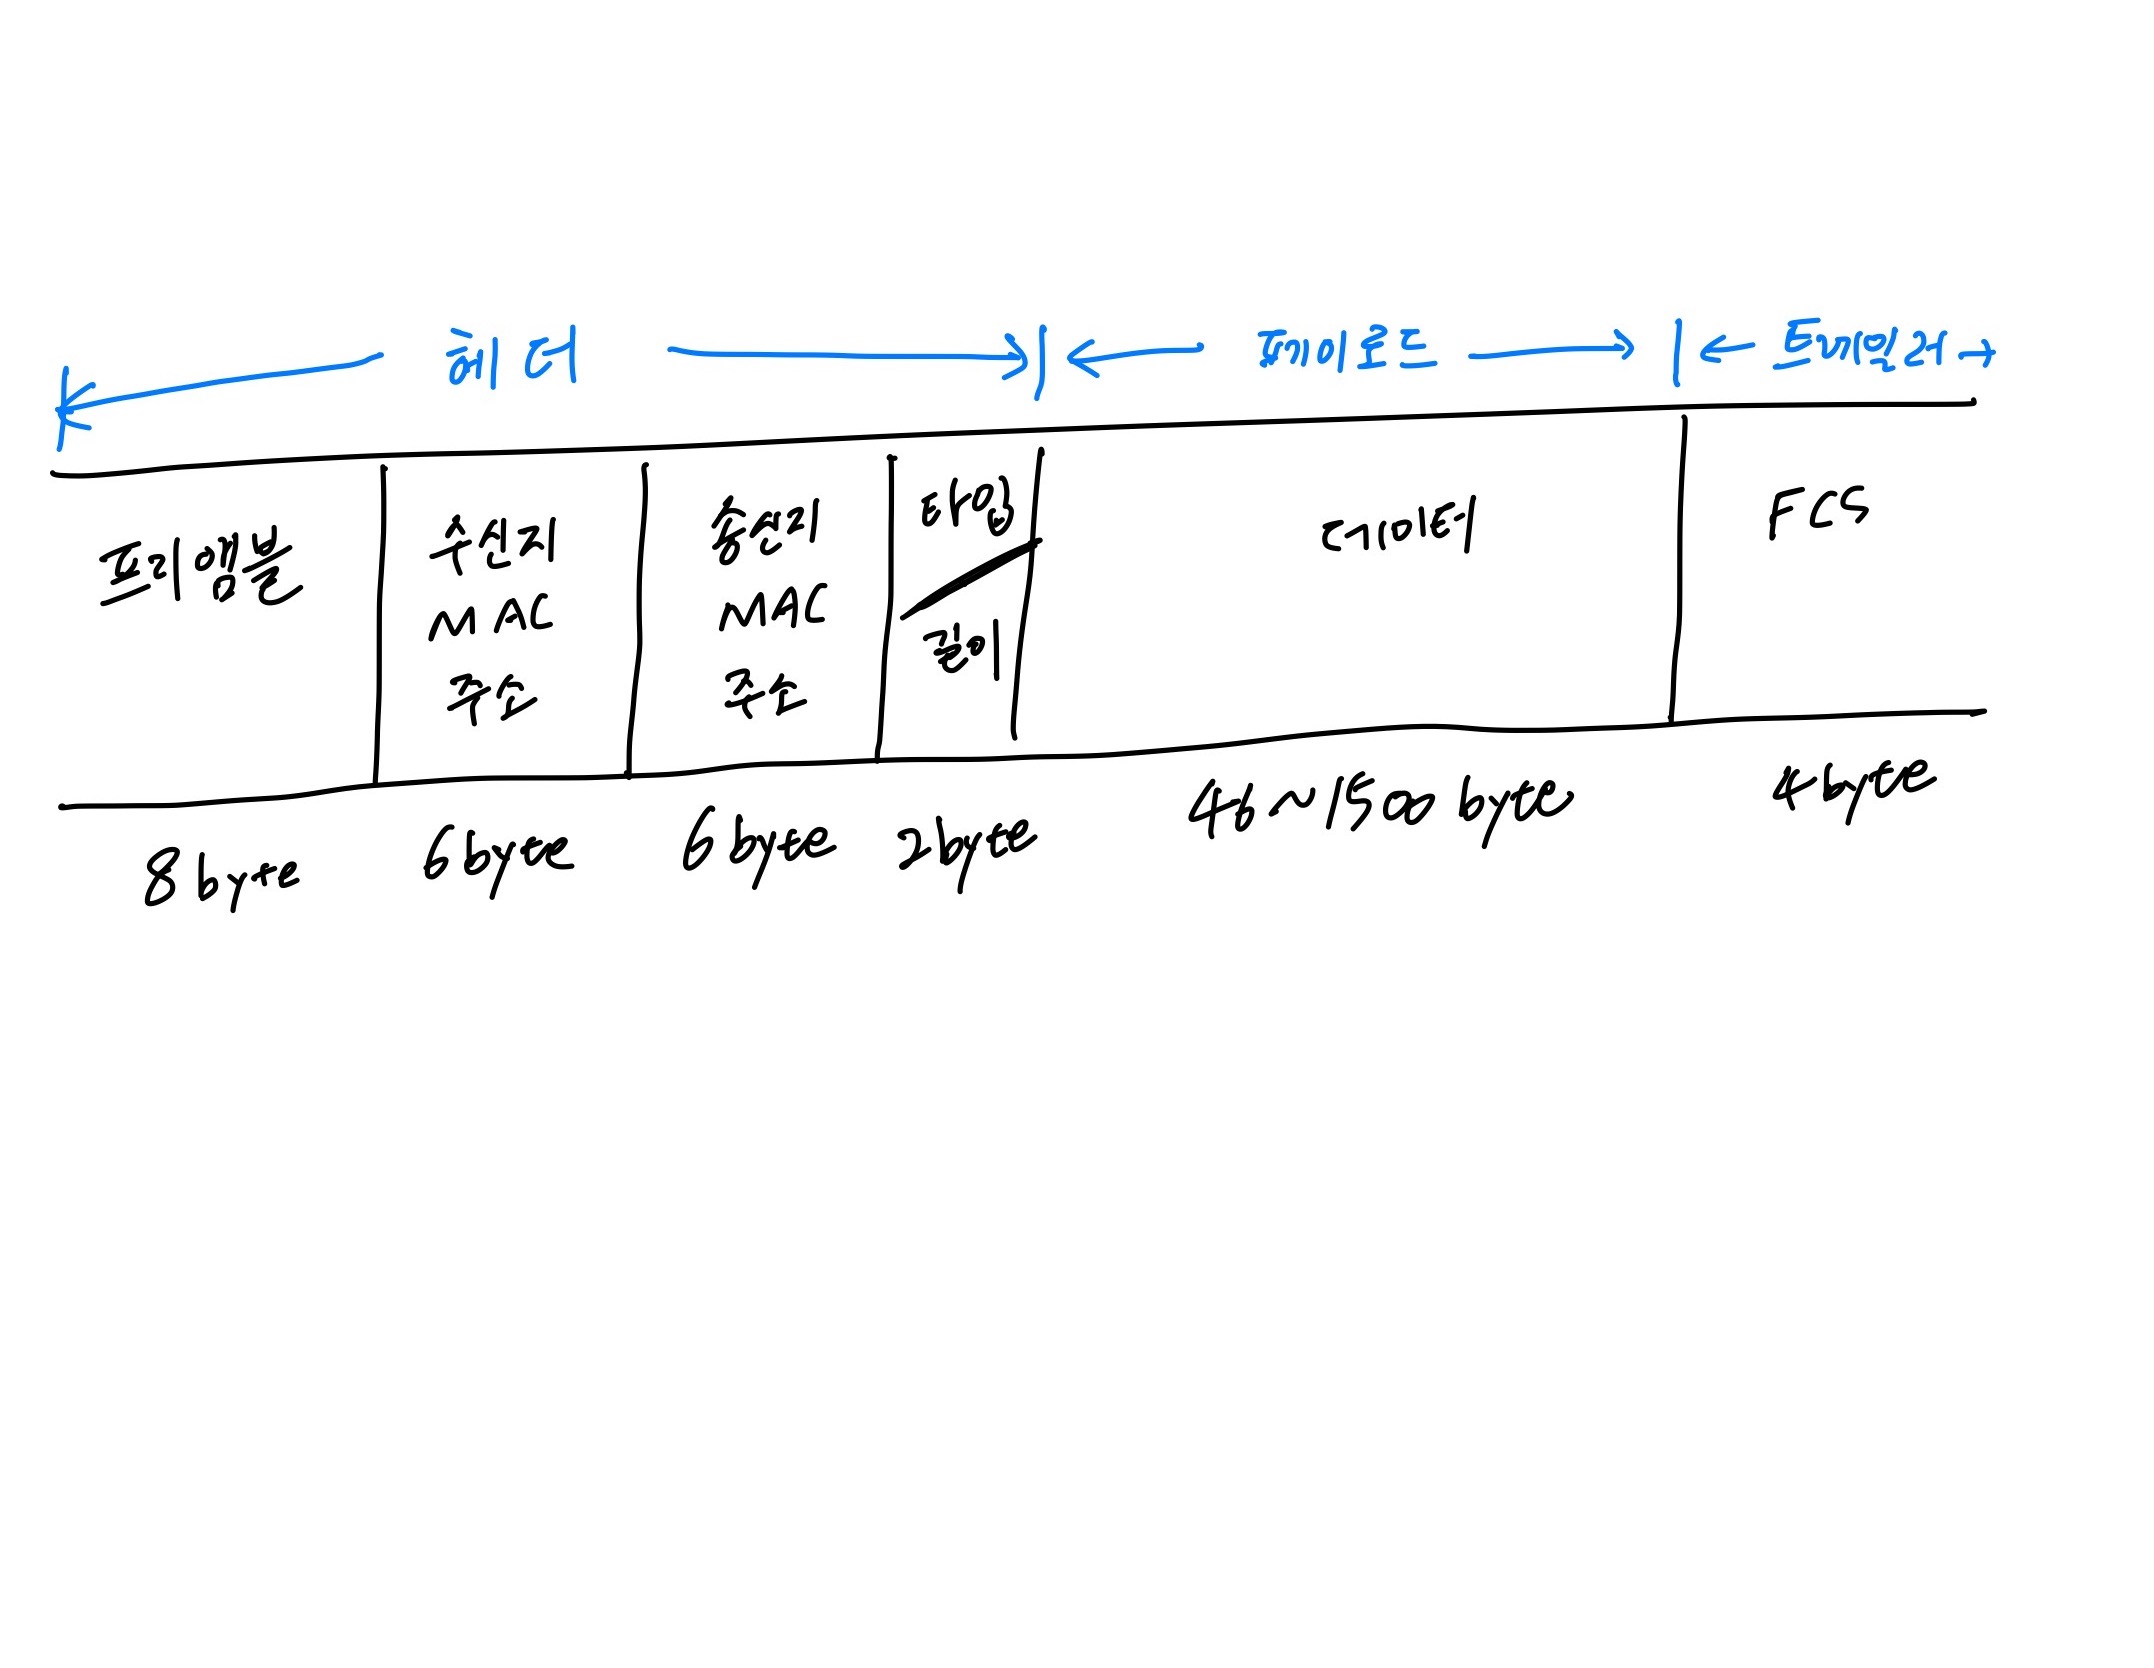 헤더 페이로드 트레일러
프리앰블
수신지
MAC
주소
송신지
MAC
주소
타입
길이
데이터
FCS
8byte 6byte 6byte 2byte 46~1500byte 4byte